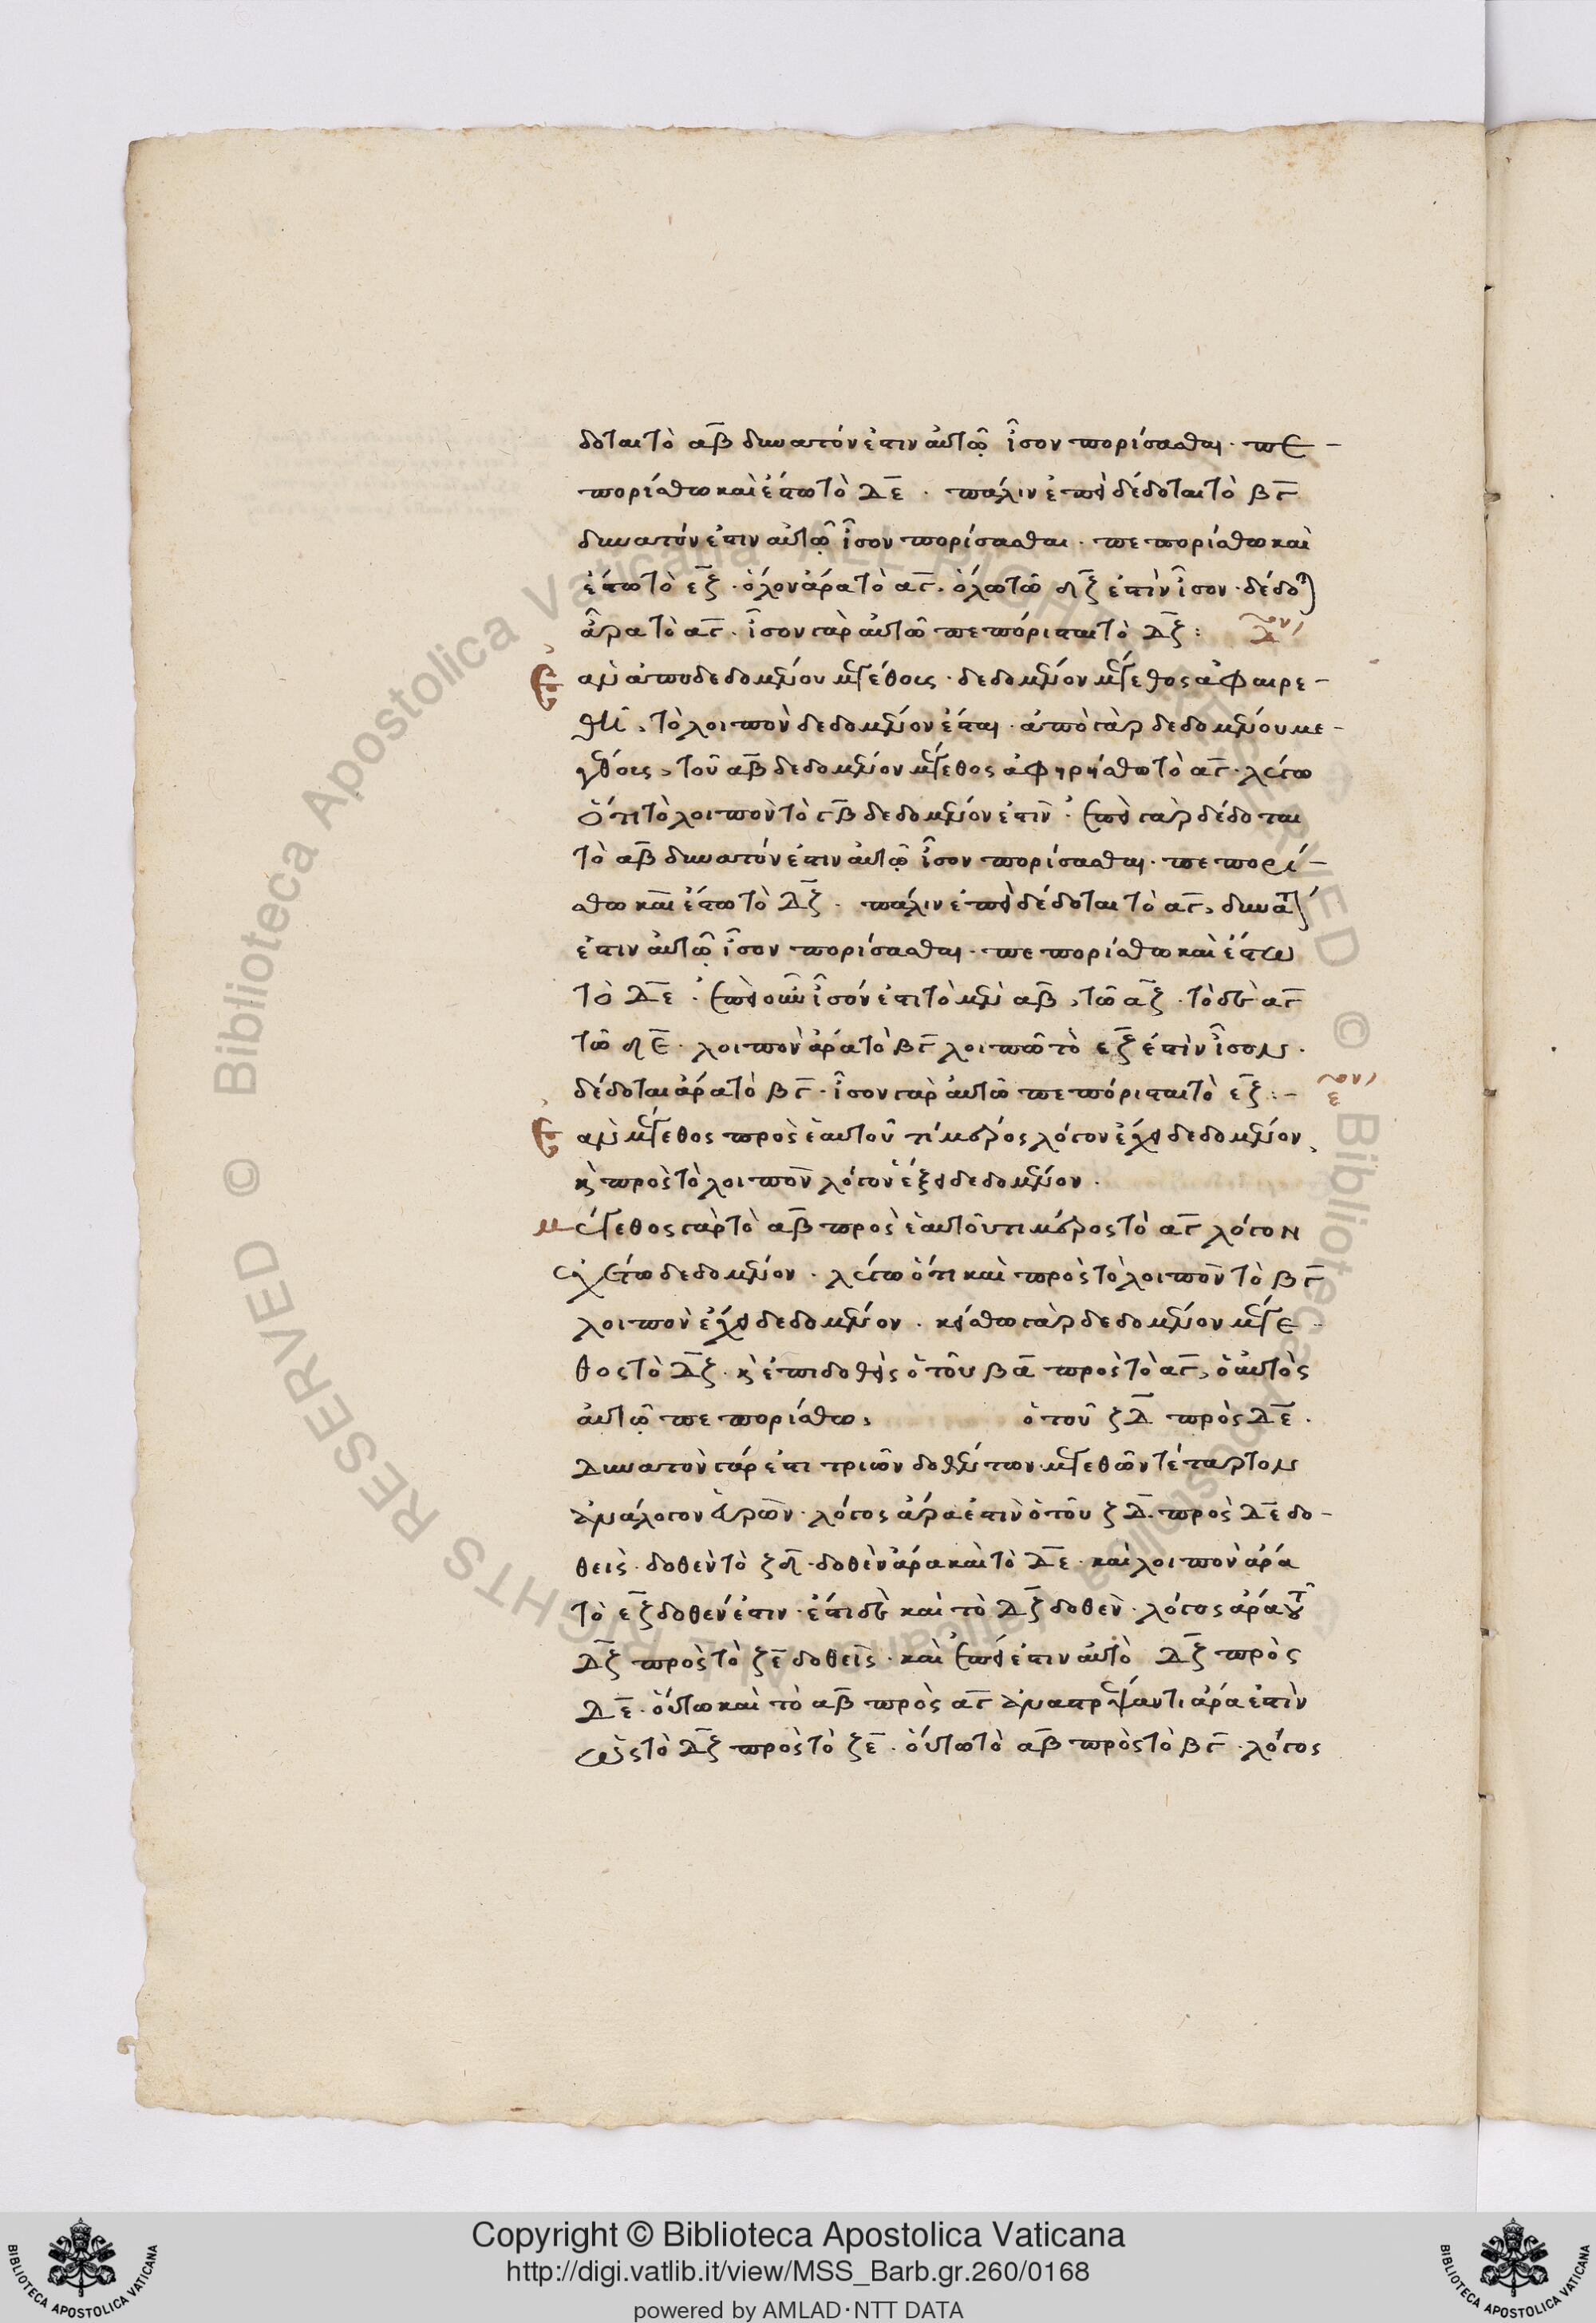 δοται τὸ αβ δυνατόν ἐστιν αὐτῷ ἴσον πορίσασθαι· πε-
πορίσθω καὶ ἔστω τὸ δε· πάλιν ἐπεὶ δέδοται τὸ βγ
δυνατόν ἐστιν αὐτῷ ἴσον πορίσασθαι· πεπορίσθω καὶ
ἔστω τὸ εζ· ὅλον ἄρα τὸ αγ, ὅλω τῶ δζ ἐστὶν ἴσον· δέδοται
ἄρα τὸ αγ· ἴσον γὰρ αὐτῶ πεπόρισται τὸ δζ:
δ
Ἐὰν ἀπὸ δεδομένου μεγέθους· δεδομένον μέγεθος ἀφαιρε-
θῆ, τὸ λοιπὸν δεδομένον ἔσται· ἀπὸ γὰρ δεδομένου με-
γέθους, τοῦ αβ δεδομένον μέγεθος ἀφῃρήσθω τὸ αγ· λέγω
ὅτι τὸ λοιπὸν τὸ γβ δεδομένον ἐστιν· ἐπεὶ γὰρ δέδοται
τὸ αβ δυνατόν ἐστιν αὐτῷ ἴσον πορίσασθαι· πεπορί-
σθω καὶ ἔστω τὸ δζ· πάλιν ἐπεὶ δέδοται τὸ αγ, δυνατόν
ἐστιν αὐτῷ ἴσον πορίσασθαι· πεπορίσθω καὶ ἔστω
τὸ δε· ἐπεὶ οὖν ἴσόν ἐστι τὸ μὲν αβ, τῶ αζ· τὸ δὲ αγ
τῶ δε· λοιπὸν ἄρα τὸ βγ λοιπῶ τὸ εζ ἐστὶν ἴσον·
δέδοται ἄρα τὸ βγ· ἴσον γὰρ αὐτῶ πεπόρισται τὸ εζ:-
ε
Ἐὰν μέγεθος πρὸς ἑαυτοῦ τί μέρος λόγον ἔχει δεδομένον,
καὶ πρὸς τὸ λοιπὸν λόγον ἕξει δεδομένον·
Μέγεθος γὰρ τὸ αβ πρὸς ἑαυτοῦ τι μέρος τὸ αγ λόγον
ἐχέτω δεδομένον· λέγω ὅτι καὶ πρὸς τὸ λοιπὸν τὸ βγ
λοιπὸν ἔχει δεδομένον· κείσθω γὰρ δεδομένον μέγε-
θος τὸ δζ· καὶ ἐπι δοθεὶς ὁ τοῦ βα πρὸς τὸ αγ, ὁ αὐτὸς
αὐτῷ πεπορίσθω, ὁ τοῦ ζδ πρὸς δε·
Δυνατὸν γάρ ἐστι τριῶν δοθέντων μεγεθῶν τέταρτον
ἀνάλογον εὑρεῖν· λόγος ἄρα ἐστὶν ὁ τοῦ ζδ πρὸς δε δο-
θεὶς· δοθὲν τὸ ζδ· δοθὲν ἄρα καὶ τὸ δε· καὶ λοιπὸν ἄρα
τὸ εζ δοθέν ἐστιν· ἔστι δὲ καὶ τὸ δζ δοθὲν· λόγος ἄρα τοῦ
δζ πρὸς τὸ ζε δοθεὶς· καὶ ἐπεί ἐστιν αὐτὸ δζ πρὸς
δε· οὕτω καὶ τὸ αβ πρὸς αγ ἀναστρέψαντι ἄρα ἐστὶν
ὡς τὸ δζ πρὸς τὸ ζε· οὕτω τὸ αβ πρὸς τὸ βγ· λόγος
Copyright © Biblioteca Apostolica Vaticana
http://digi.vatlib.it/view/MSS_Barb.gr.260/0168
powered by AMLAD·NTT DATA